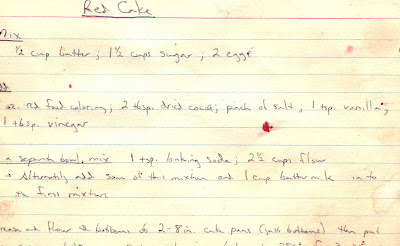 Red Cake
Mix
1/2 cup butter; 1 1/2 cups sugar; 2 eggs
oz. red food coloring; 2 tbsp. dried cocoa; pinch of salt; 1 tsp. vanilla;
1 tbsp. vinegar
separate bowl, mix 1 tsp. baking soda; 2 1/2 cups flour
→ Alternately add some of this mixture and 1 cup buttermilk into
the first mixture
and flour the bottoms of 2-8in. cake pans (just bottoms) then put